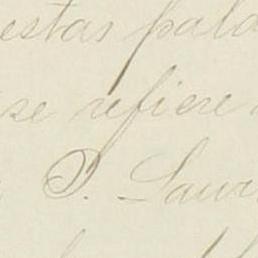 estas pala
se refiere
P. Laur